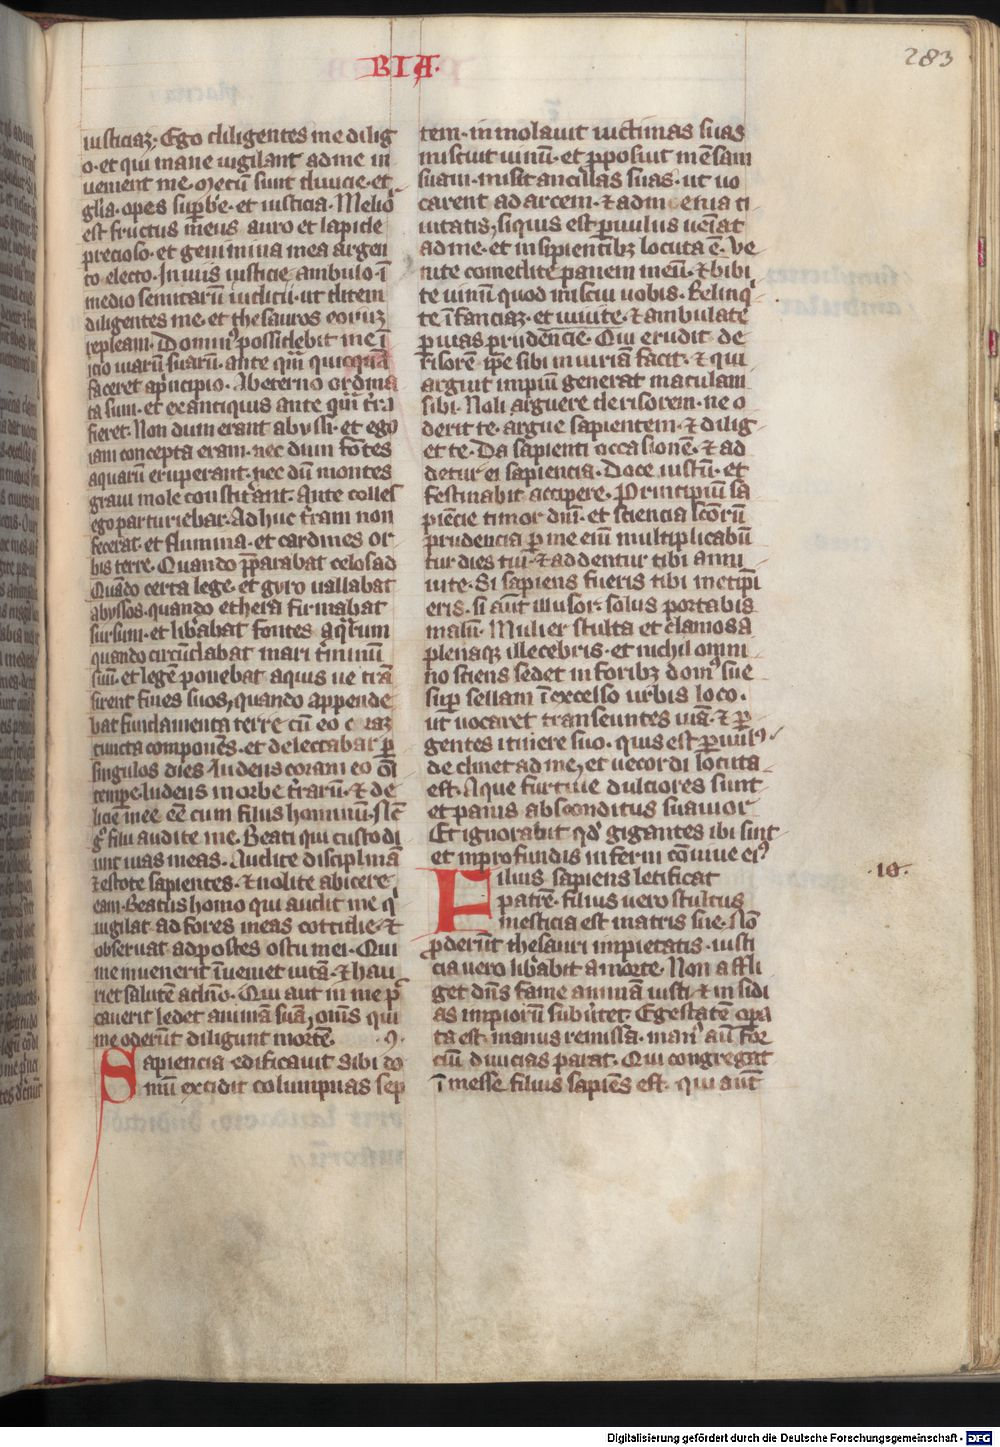 283
BIA.
iusticiaʒ. Ego diligentes me dilig
o. et qui mane uigilant ad me in
uenient me. Mecū sunt diuicie. et
glīa. opes supbe. et iusticia. Melio᷒
est fructus meus auro et lapide
precioso. et genimina mea argen
to electo. In uiis iusticie ambulo ī
medio semitarū iudicii. ut ditem
diligentes me. et thesauros eoruʒ
repleam. Domin᷒ possidebit me ī
icio uiarū suarū. ante qm̄ quicqua
faceret apncipio. Abeterno ordina
ta sum. et ex antiquis ante qm̄ tr̄a
fieret. Non dum erant abyssi. et ego
iam concepta eram. nec dum fontes
aquarū eruperant. nec dū montes
graui mole constit᷒ant. Ante colles
ego parturiebar. Adhuc tr̄am non
fecerat. et flumina. et cardines or
bis terre. Quando p̄parabat celos ad
Quādo certa lege. et gyro uallabat
abyssos. quando ethera firmabat
sursum. et lib᷒abat fontes aq᷒rum
quando circūdabat mari t᷒minū
suū. et legē ponebat aquis ne trā
sirent fines suos, quando appende
bat fundamenta terre cū eo eraʒ
cuncta componēs. et delectabar p̱
singulos dies ludens coram eo oī
tempe. ludens in orbe t᷒rarū. et de
licie mee eē cum filiis hominū. Nc̄
g᷒ filii audite me. Beati qui custodi
unt uias meas. Audite disciplinā
et estote sapientes. et nolite abicere
eam. Beatus homo qui audit me q᷒
uigilat ad fores meas cottidie. et
obseruat ad postes ostii mei. Qui
me inuenerit īueniet uitā. et hau
riet salutē a dn̄o. Qui aut in me p᷒
cauerit ledet animā suā, om̄s qui
me oderūt diligunt mortē. .9.
Sapiencia edificauit sibi do
mū excidit columpnas sep
tem. inmolauit uictimas suas
miscuit uinū. et p̱posuit mēsam
suam. misit ancillas suas. ut uo
carent ad arcem. et ad menia ci
uitatis, siquis est p̱uulus ueīat
ad me. et insipientibʒ locuta ē. Ve
nite comedite panem meū. et bibi
te uinū quod miscui uobis. Relinq᷒
te īfanciaʒ. et uiuite. et ambulate
p̱ uias prudēncie. Qui erudit de
risorē ipē sibi iniuriā facit. et qui
arguit impiū generat maculam
sibi. Noli arguere derisorem. ne o
derit te. argue sapientem. et dilig
et te. Da sapienti occasionē. et ad
detur ei sapiencia. Doce iustū. et
festinabit accipere. Principiū sa
piēcie timor dn̄i. et sciencia sc̄orū
prudencia p̱ me eiū multiplicabū
tur dies tui. et addentur tibi anni
uite. Si sapiens fueris tibi metipī
eris. si aūt illusor. solus portabis
malū. Mulier stulta et clamosa
plenaqʒ illecebris. et nichil omni
no sciens sedet in foribʒ dom᷒ sue
sup̱ sellam ī excelso urbis loco.
ut uocaret transeuntes uiā. et p̱
gentes itinere suo. quis est p̱uul᷒
declinet ad me, et uecordi locuta
est. Aque furtiue dulciores sunt
et panis absconditus suauior
Et ignorabit qd̄ gigantes ibi sint
et in profundis inferni cōuiue ei᷒
Filius sapiens letificat .10.
patrē. filius uero stultus
mesticia est matris sue. Nō
ꝓderūt thesauri impietatis. iusti
cia uero lib᷒abit a morte. Non affli
get dn̄s fame animā iusti. et insidi
as impiorū subūtet. Egestatē opa
ta est manus remissa. man᷒ aūt for
ciū diuicias parat. Qui congregat
ī messe filius sapiēs est. qui aūt
Digitalisierung gefördert durch die Deutsche Forschungsgemeinschaft - DFG